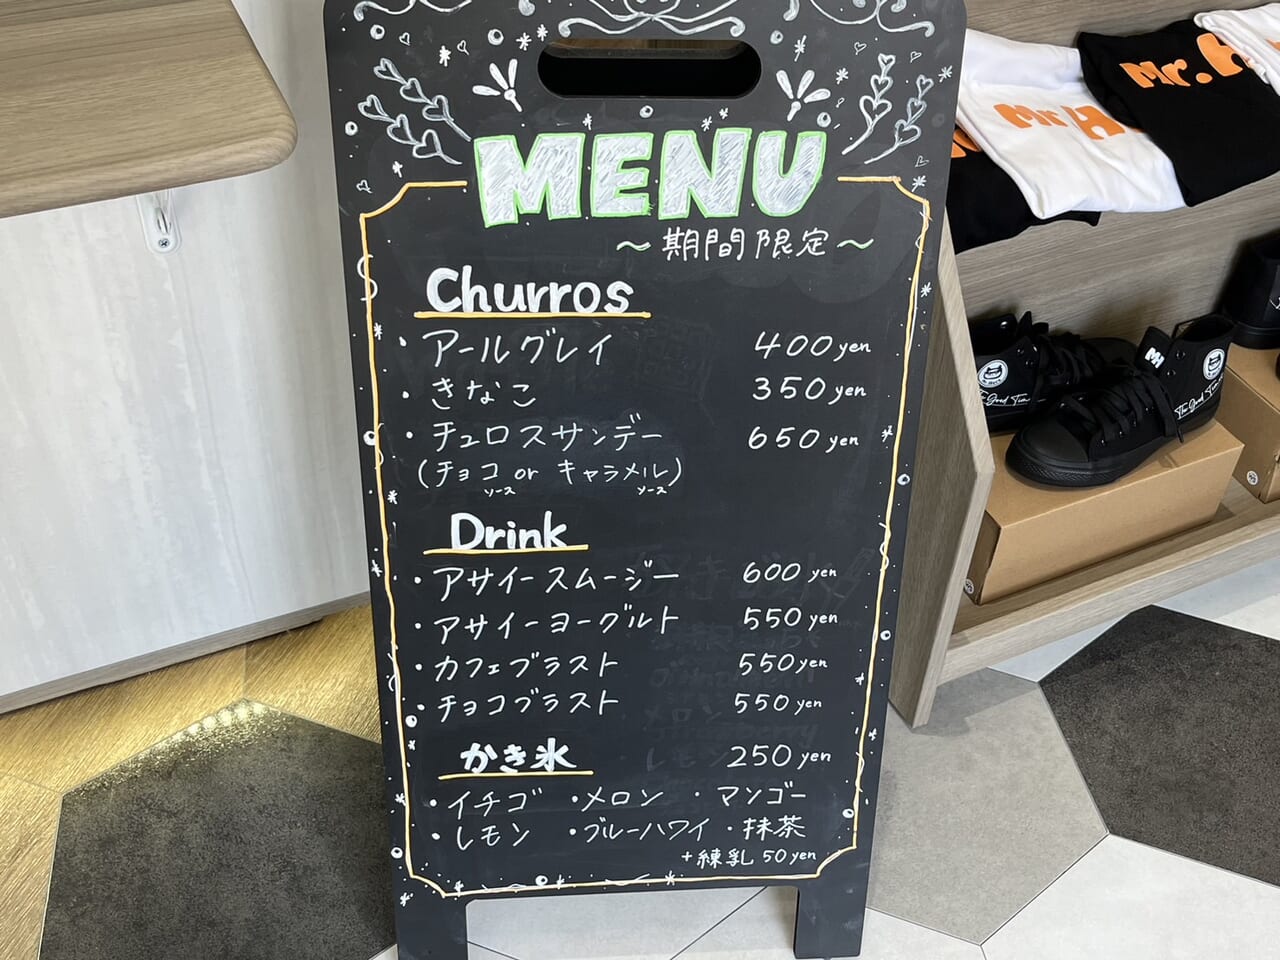 MENU
～期間限定～
Churros
・アールグレイ 400yen
・きなこ 350yen
・チュロスサンデー 650yen
(チョコソース or キャラメルソース)
Drink
・アサイースムージー 600yen
・アサイーヨーグルト 550yen
・カフェブラスト 550yen
・チョコブラスト 550yen
かき氷 250yen
・イチゴ ・メロン ・マンゴー
・レモン ・ブルーハワイ ・抹茶
+練乳 50yen
Mr.H
Mr.H
MH
The Good Time